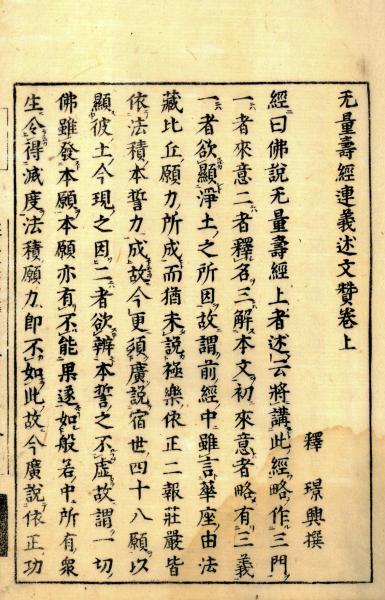 无量壽經連義述文贊卷上
釋 璟興撰
經曰佛說无量壽經上者述云將講此經略作三門
一者來意二者釋名三解本文初來意者略有三義
一者欲顯淨土之所因故謂前經中雖言華座由法
藏比丘願力所成而猶未說極樂依正二報莊嚴皆
依法積本誓力成故今更須廣說宿世四十八願以
顯彼土今現之因二者欲辨本誓之不虛故謂一切
佛雖發本願本願亦有不能果遂如般若中所有衆
生令得滅度法積願力即不如此故今廣說依正功